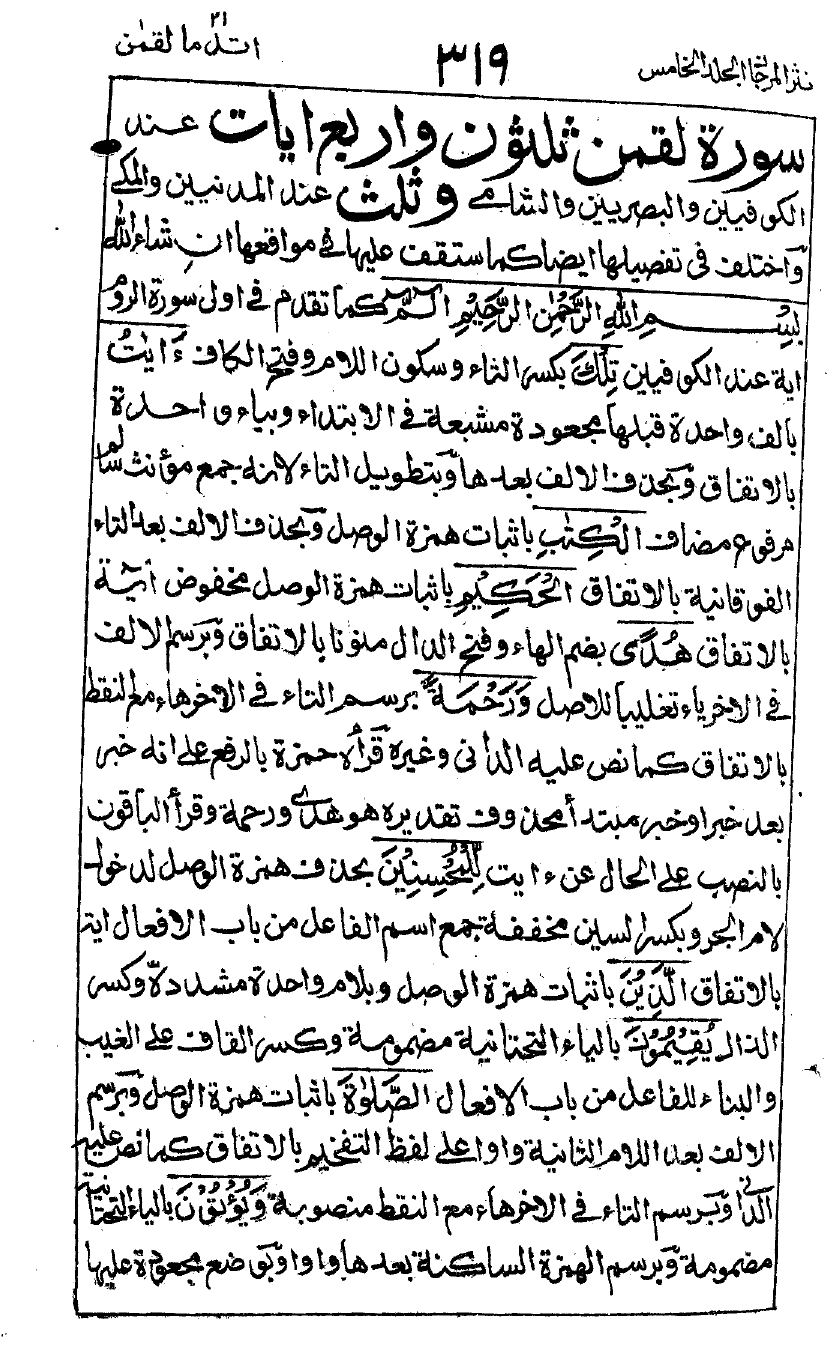 نثر المرجان المجلد الخامس
٣١٩
اتل ما لقمن
٢١
سورة لقمن ثلثون واربع ايات عند
الكوفيين والبصريين والشامے وثلث عند المدنيين والمكے
وٓاختلف فى تفصيلها ايضا كما ستقف عليها فے مواقعها ان شاء الله
بِسْمِ اللهِ الرَّحْمٰنِ الرَّحِيْمِ الٓمّٓ كما تقدم فے اول سورة الروم
اية عند الكوفيين تِلْكَ بكسر التاء وسكون اللام وفتح الكاف ءَايٰتُ
بالف واحدة قبلها مجعودة مشبعة فے الابتداء وبياء واحدة
بالاتفاق وٓبحذف الالف بعدها وٓبتطويل التاء لانه جمع مؤنث سالم
مرفوع مضاف الْكِتٰبِ باثبات همزة الوصل وٓبحذف الالف بعد التاء
الفوقانية بالاتفاق الْحَكِيْمِ باثبات همزة الوصل مخفوض اٰية
بالاتفاق هُدًى بضم الهاء وفتح الدال منونا بالاتفاق وٓبرسم الالف
فے الاخر ياء تغليبا للاصل وَرَحْمَةً برسم التاء فے الاخر هاء مع النقط
بالاتفاق كما نص عليه الدانى وغيره قرأه حمزة بالرفع على انه خبر
بعد خبر او خبر مبتدأ محذوف تقديره هو هدى ورحمة وقرأ الباقون
بالنصب على الحال عن ءايت لِّلْمُحْسِنِيْنَ بحذف همزة الوصل لدخول
لام الجر وبكسر السين مخففة جمع اسم الفاعل من باب الافعال اية
بالاتفاق الَّذِيْنَ باثبات همزة الوصل وبلام واحدة مشددة وكسر
الذال يُقِيْمُوْنَ بالياء التحتانية مضمومة وكسر القاف على الغيب
والبناء للفاعل من باب الافعال الصَّلٰوةَ باثبات همزة الوصل وٓبرسم
الالف بعد اللام الثانية واوا على لفظ التفخيم بالاتفاق كما نص عليه
الدانى وٓبرسم التاء فے الاخر هاء مع النقط منصوبة وَيُؤْتُوْنَ بالياء التحتانية
مضمومة وٓبرسم الهمزة الساكنة بعدها واوا وٓبوضع مجعودة عليها